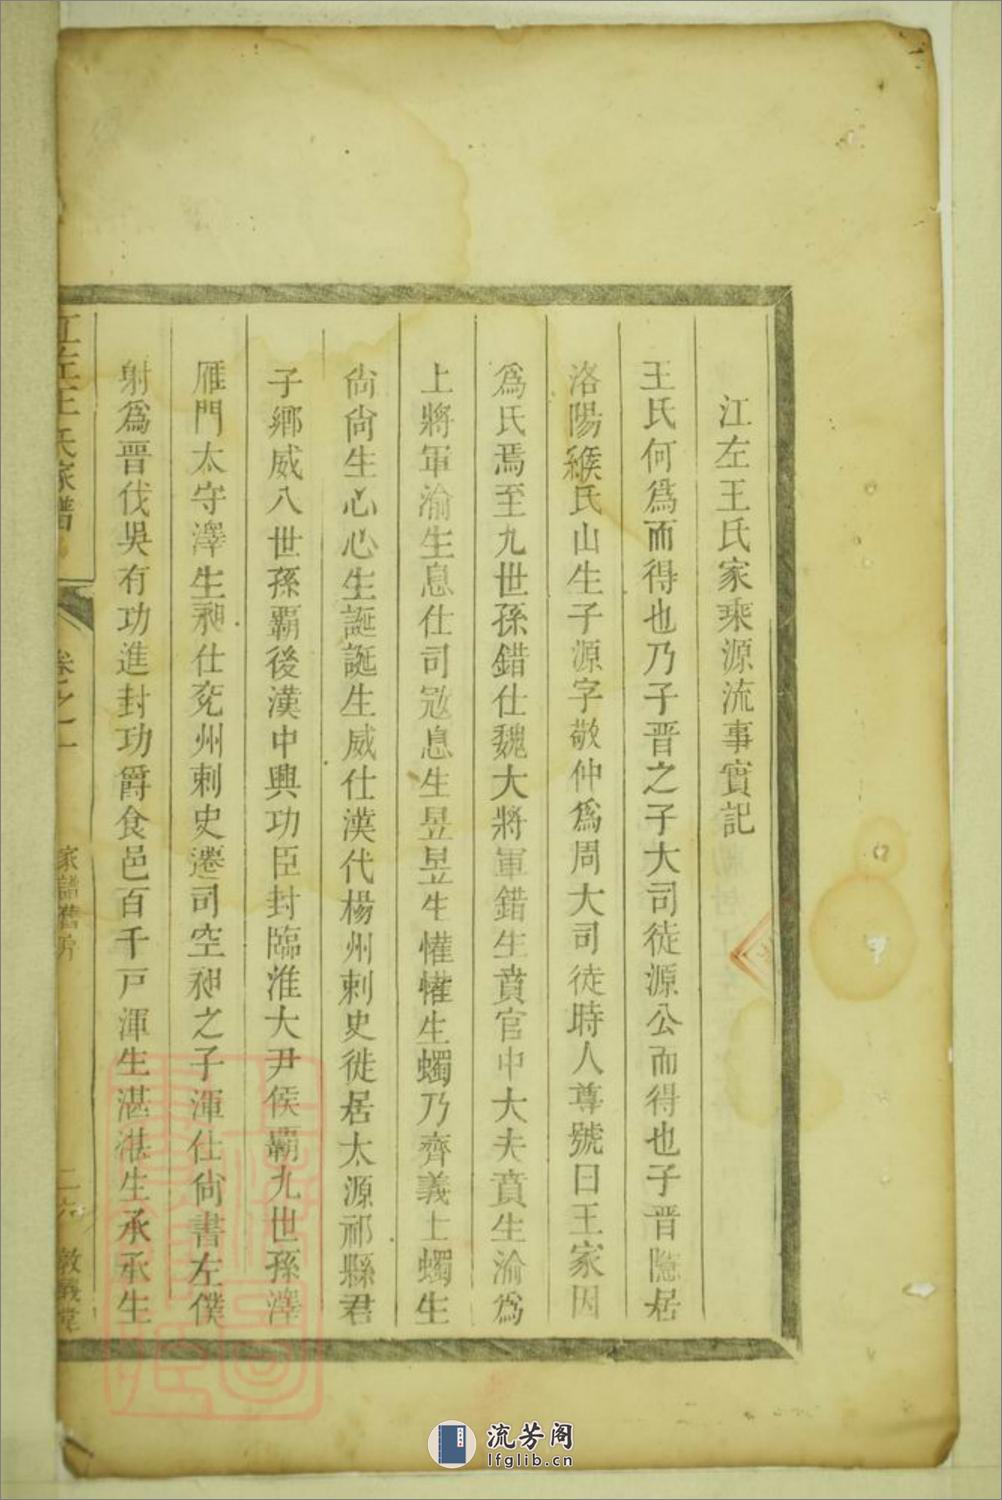 江左王氏家乘源流事實記
王氏何爲而得也乃子晋之子大司徒源公而得也子晋隱居
洛陽緱氏山生子源字敬仲爲周大司徒時人尊號曰王家因
爲氏焉至九世孫錯仕魏大將軍錯生賁官中大夫賁生渝爲
上將軍渝生息仕司冦息生昱昱生懽懽生蠋乃齊義士蠋生
尙尙生心心生誕誕生威仕漢代楊州刺史徙居太源祁縣君
子鄉威八世孫霸後漢中興功臣封臨淮大尹侯霸九世孫澤
雁門太守澤生昶仕兖州刺史遷司空昶之子渾仕尙書左僕
射爲晋伐吳有功進封功爵食邑百千戸渾生湛湛生承承生
江左王氏家譜
卷之一
家譜舊序
二六
教義堂
流芳阁
lfglib.cn